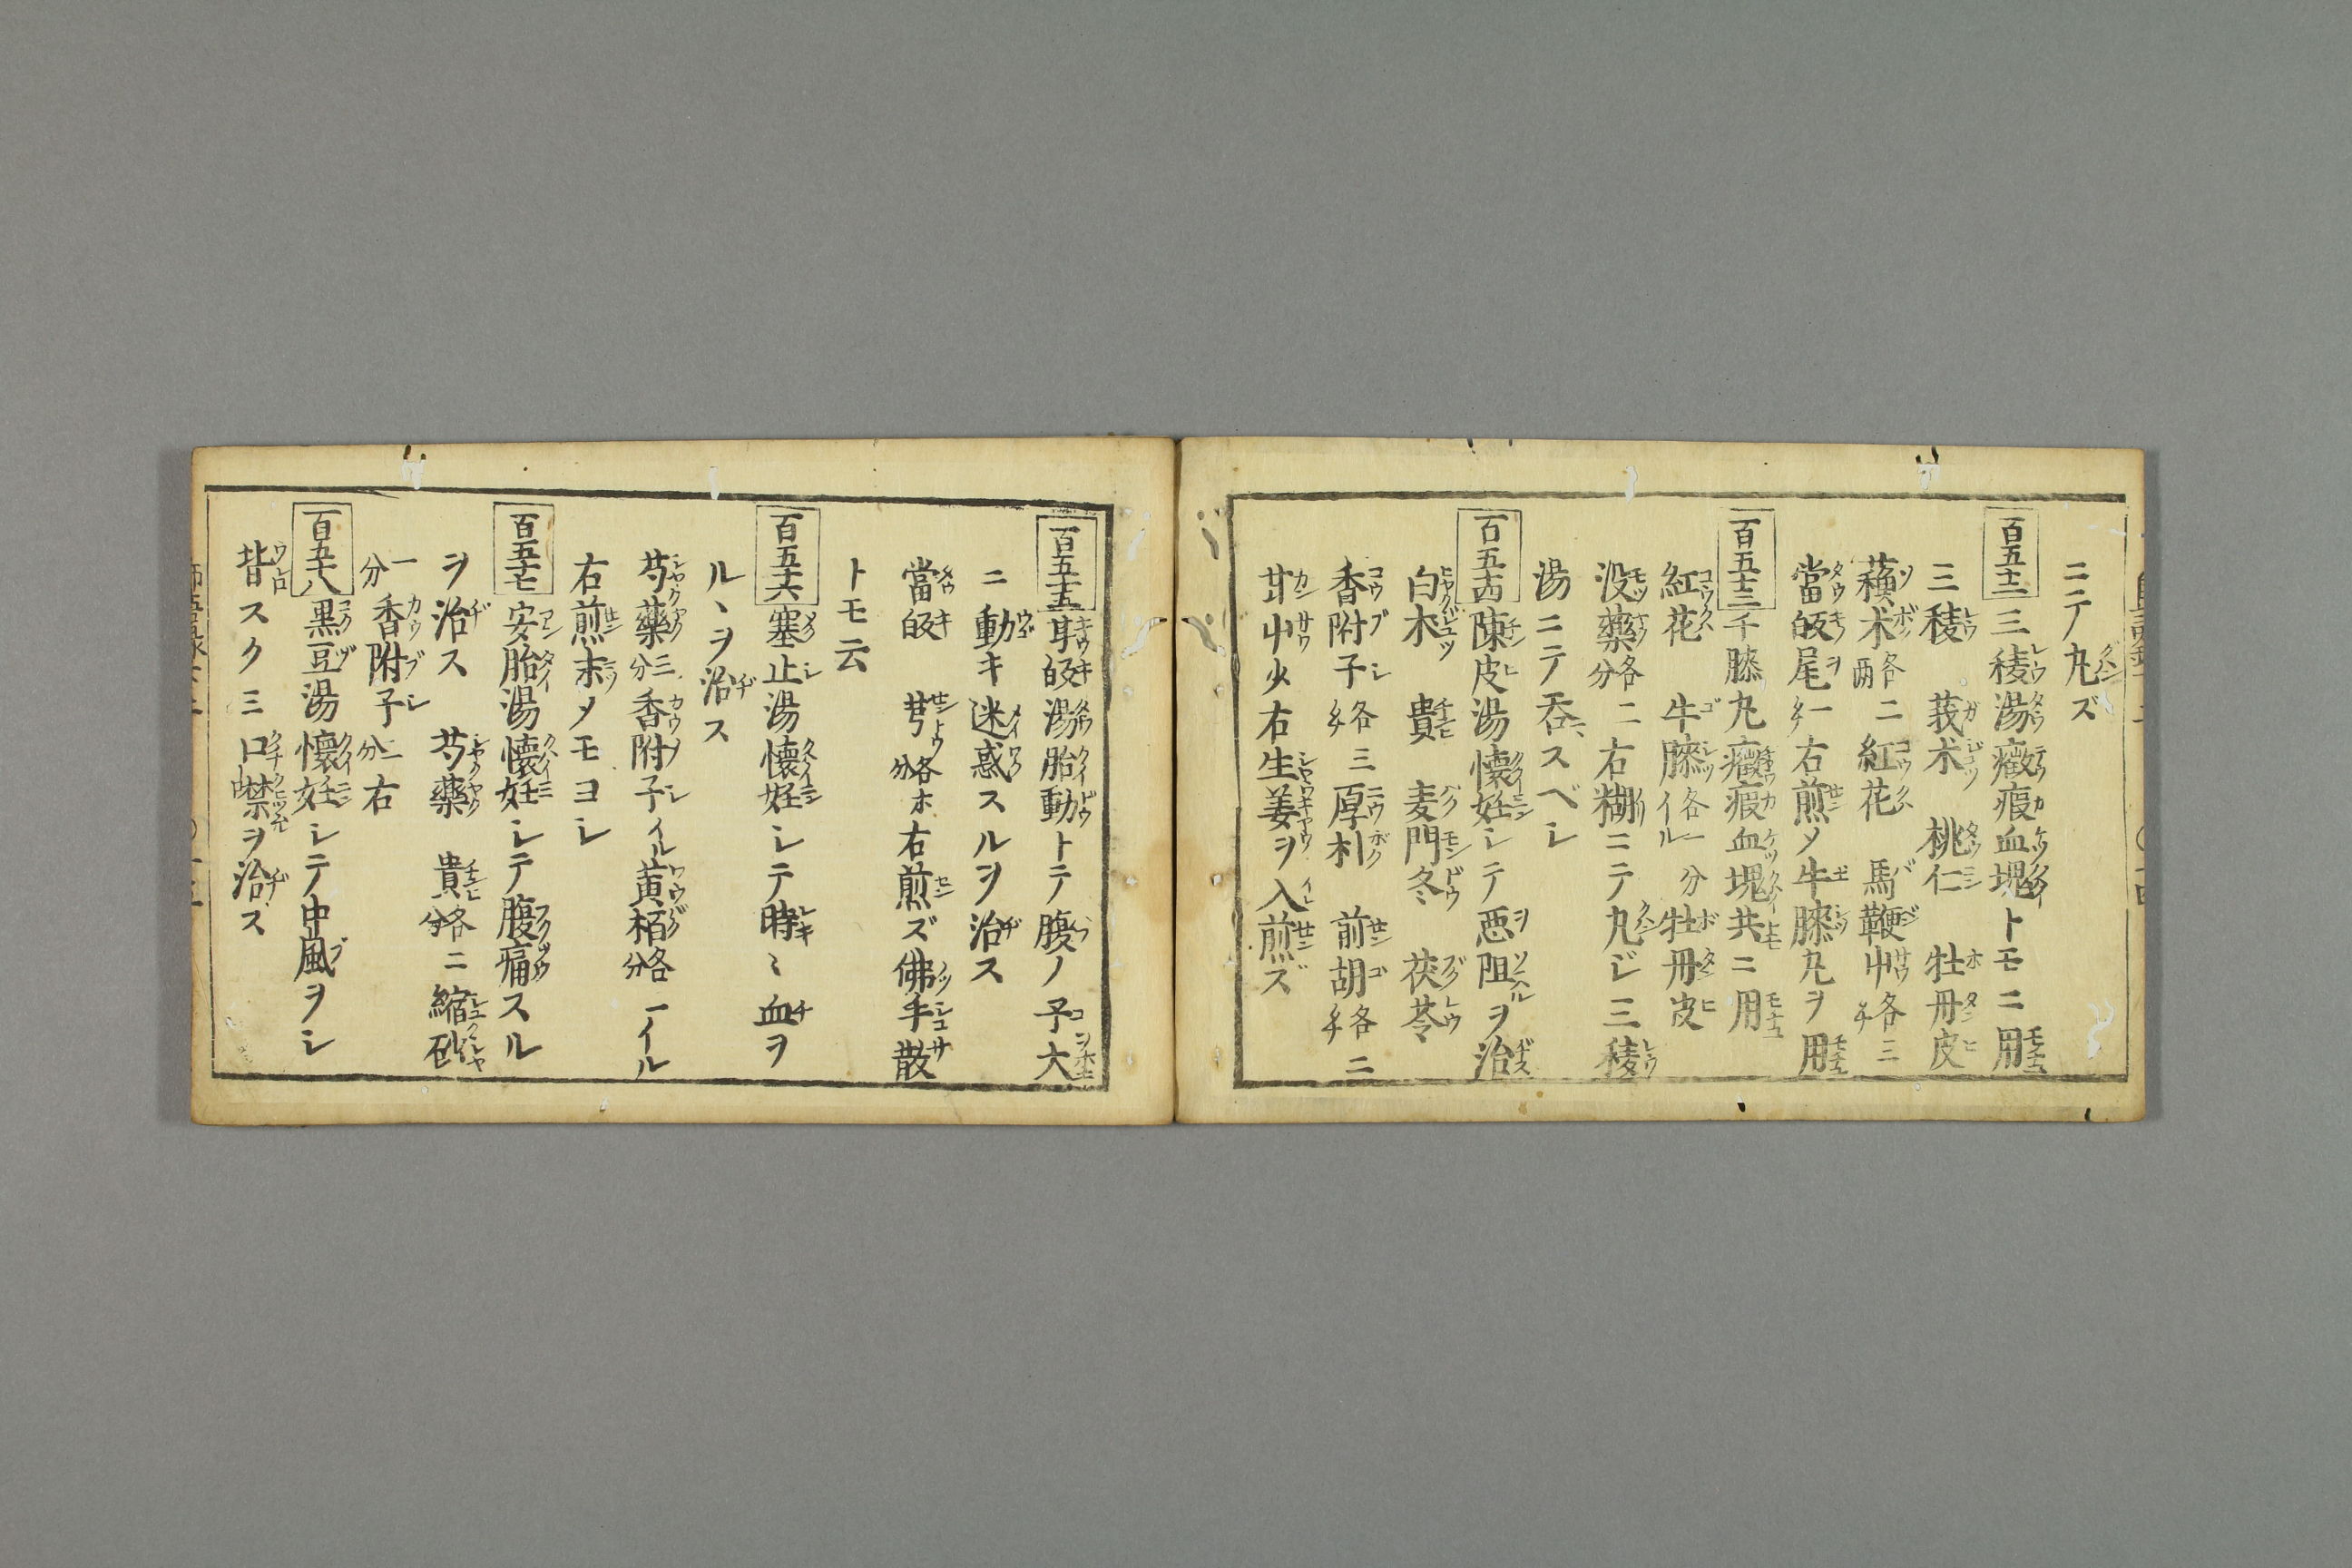 ニテ丸ズ
百五十二 三稜湯癥瘕血塊トモニ用
三稜 莪朮 桃仁 牡丹皮
蘓木各二両紅花 馬鞭艸各三
當皈尾一右煎メ牛膝丸ヲ用
百五十三 牛膝丸癥瘕血塊共ニ用
紅花 牛膝各一分イル牡丹皮
没藥各二分右糊ニテ丸ジ三稜
湯ニテ呑スベシ
百五十四 陳皮湯懐妊シテ悪阻ヲ治
白朮 貴 麦門冬 茯苓
香附子各三厚朴 前胡各二
甘艸少右生姜ヲ入煎ズ
百五十五 芎皈湯胎動トテ腹ノ子大
ニ動キ迷惑スルヲ治ス
當皈 芎各分ホ右煎ズ佛手散
トモ云
百五十六 塞止湯懐妊シテ時〻血ヲ
ルヽヲ治ス
芍藥三分香附子イル黄栢各一分イル
右煎末メモヨシ
百五十七 安胎湯懐妊シテ腹痛スル
ヲ治ス 芍藥 貴各二分縮砂
一分香附子二分右
百五十八 黒豆湯懐妊シテ中風ヲシ
皆スクミ口噤ヲ治ス